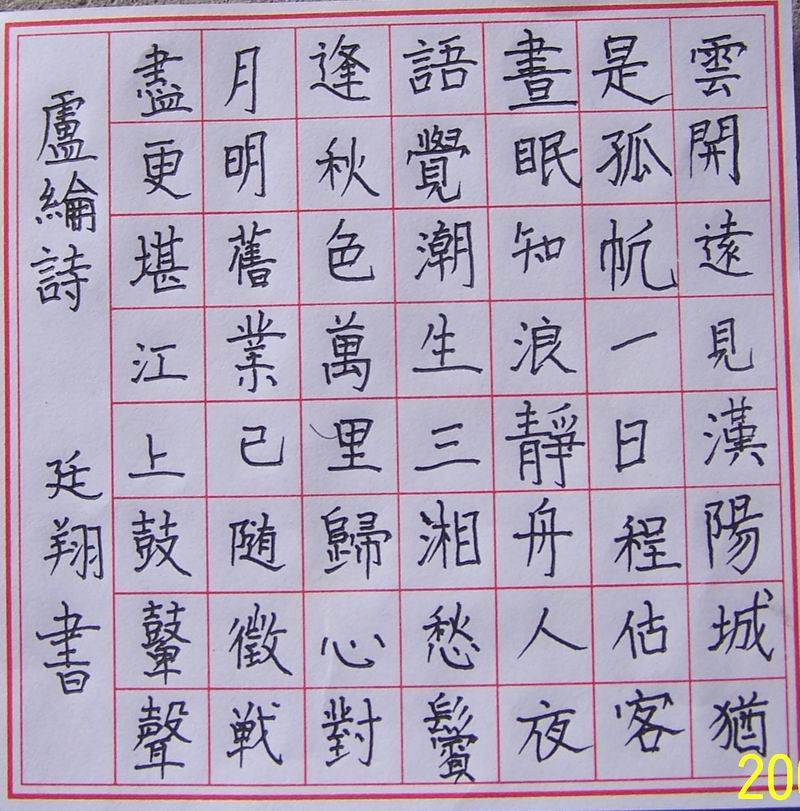 雲開遠見漢陽城猶
是孤帆一日程估客
晝眠知浪靜舟人夜
語覺潮生三湘愁鬢
逢秋色萬里歸心對
月明舊業已随徵戦
盡更堪江上鼓鼙聲
盧綸詩 廷翔書